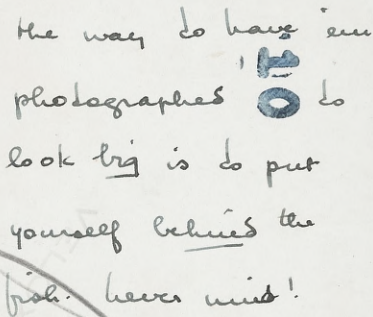 the way to have 'em
photographed 10 to
look big is to put
yourself behind the
fish. Never mind!